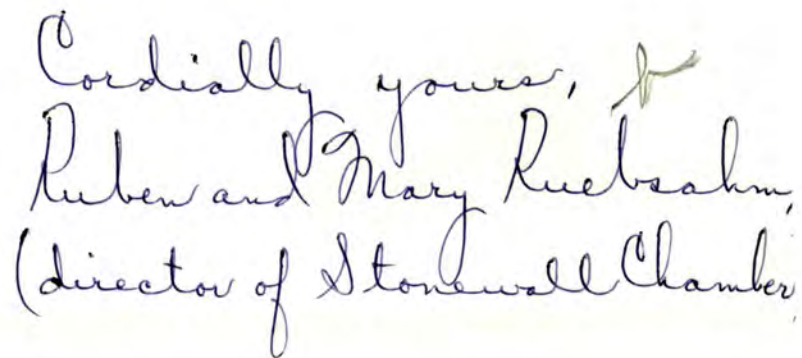 Cordially yours,
Ruben and Mary Ruebsahm,
(director of Stonewall Chamber